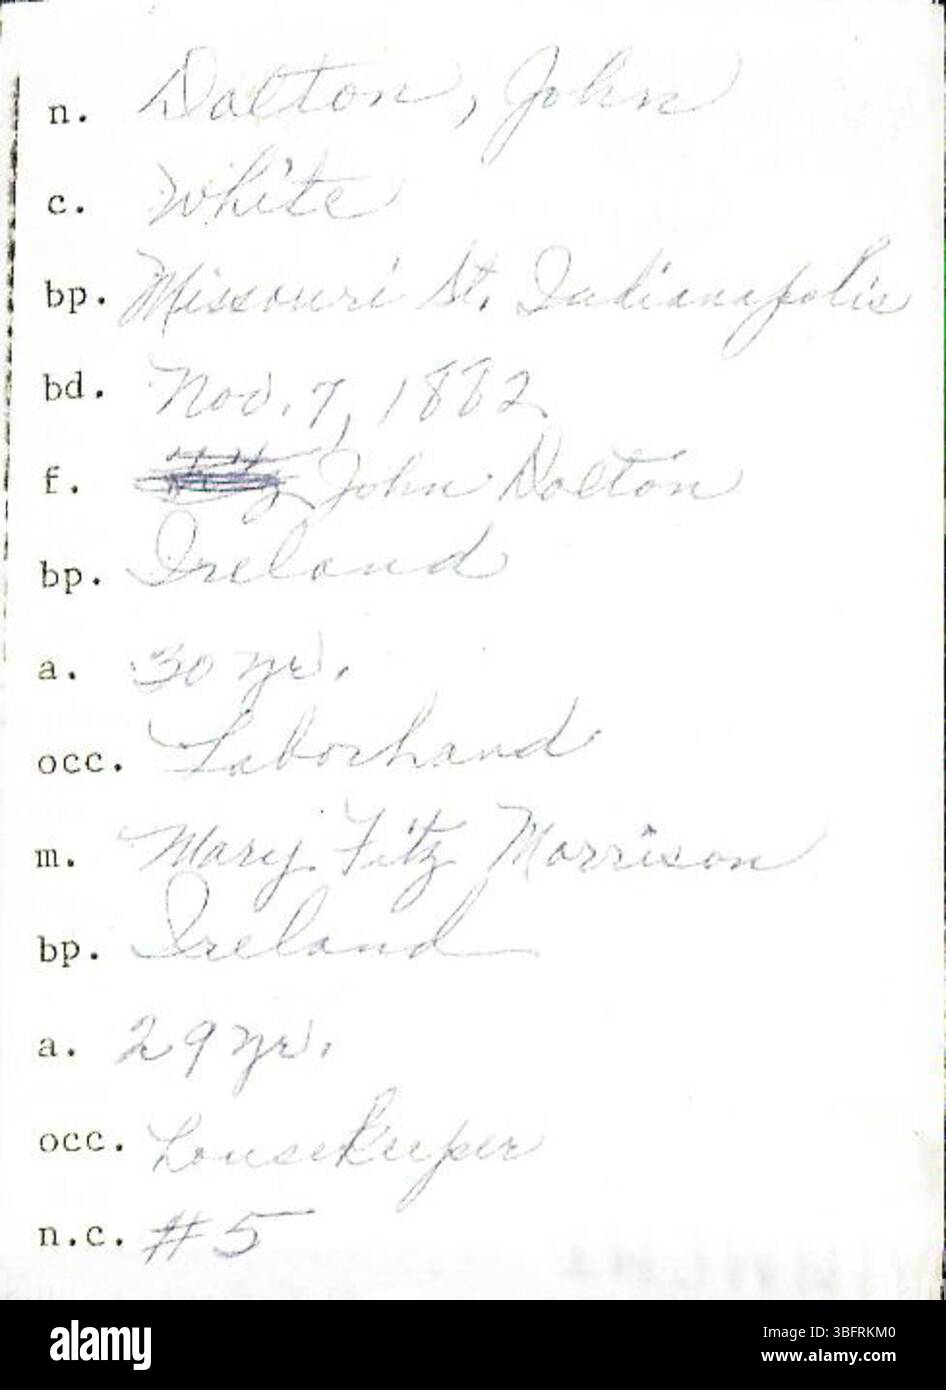 n. Dalton, John
c. White
bp. Missouri St. Indianapolis
bd. Nov. 7, 1882
f. John Dalton
bp. Ireland
a. 30 yr.
occ. Laborhand
m. Mary Fitz Morrison
bp. Ireland
a. 29 yr.
occ. housekeeper
n.c. #5
alamy
Image ID: 3BFRKM0
www.alamy.com